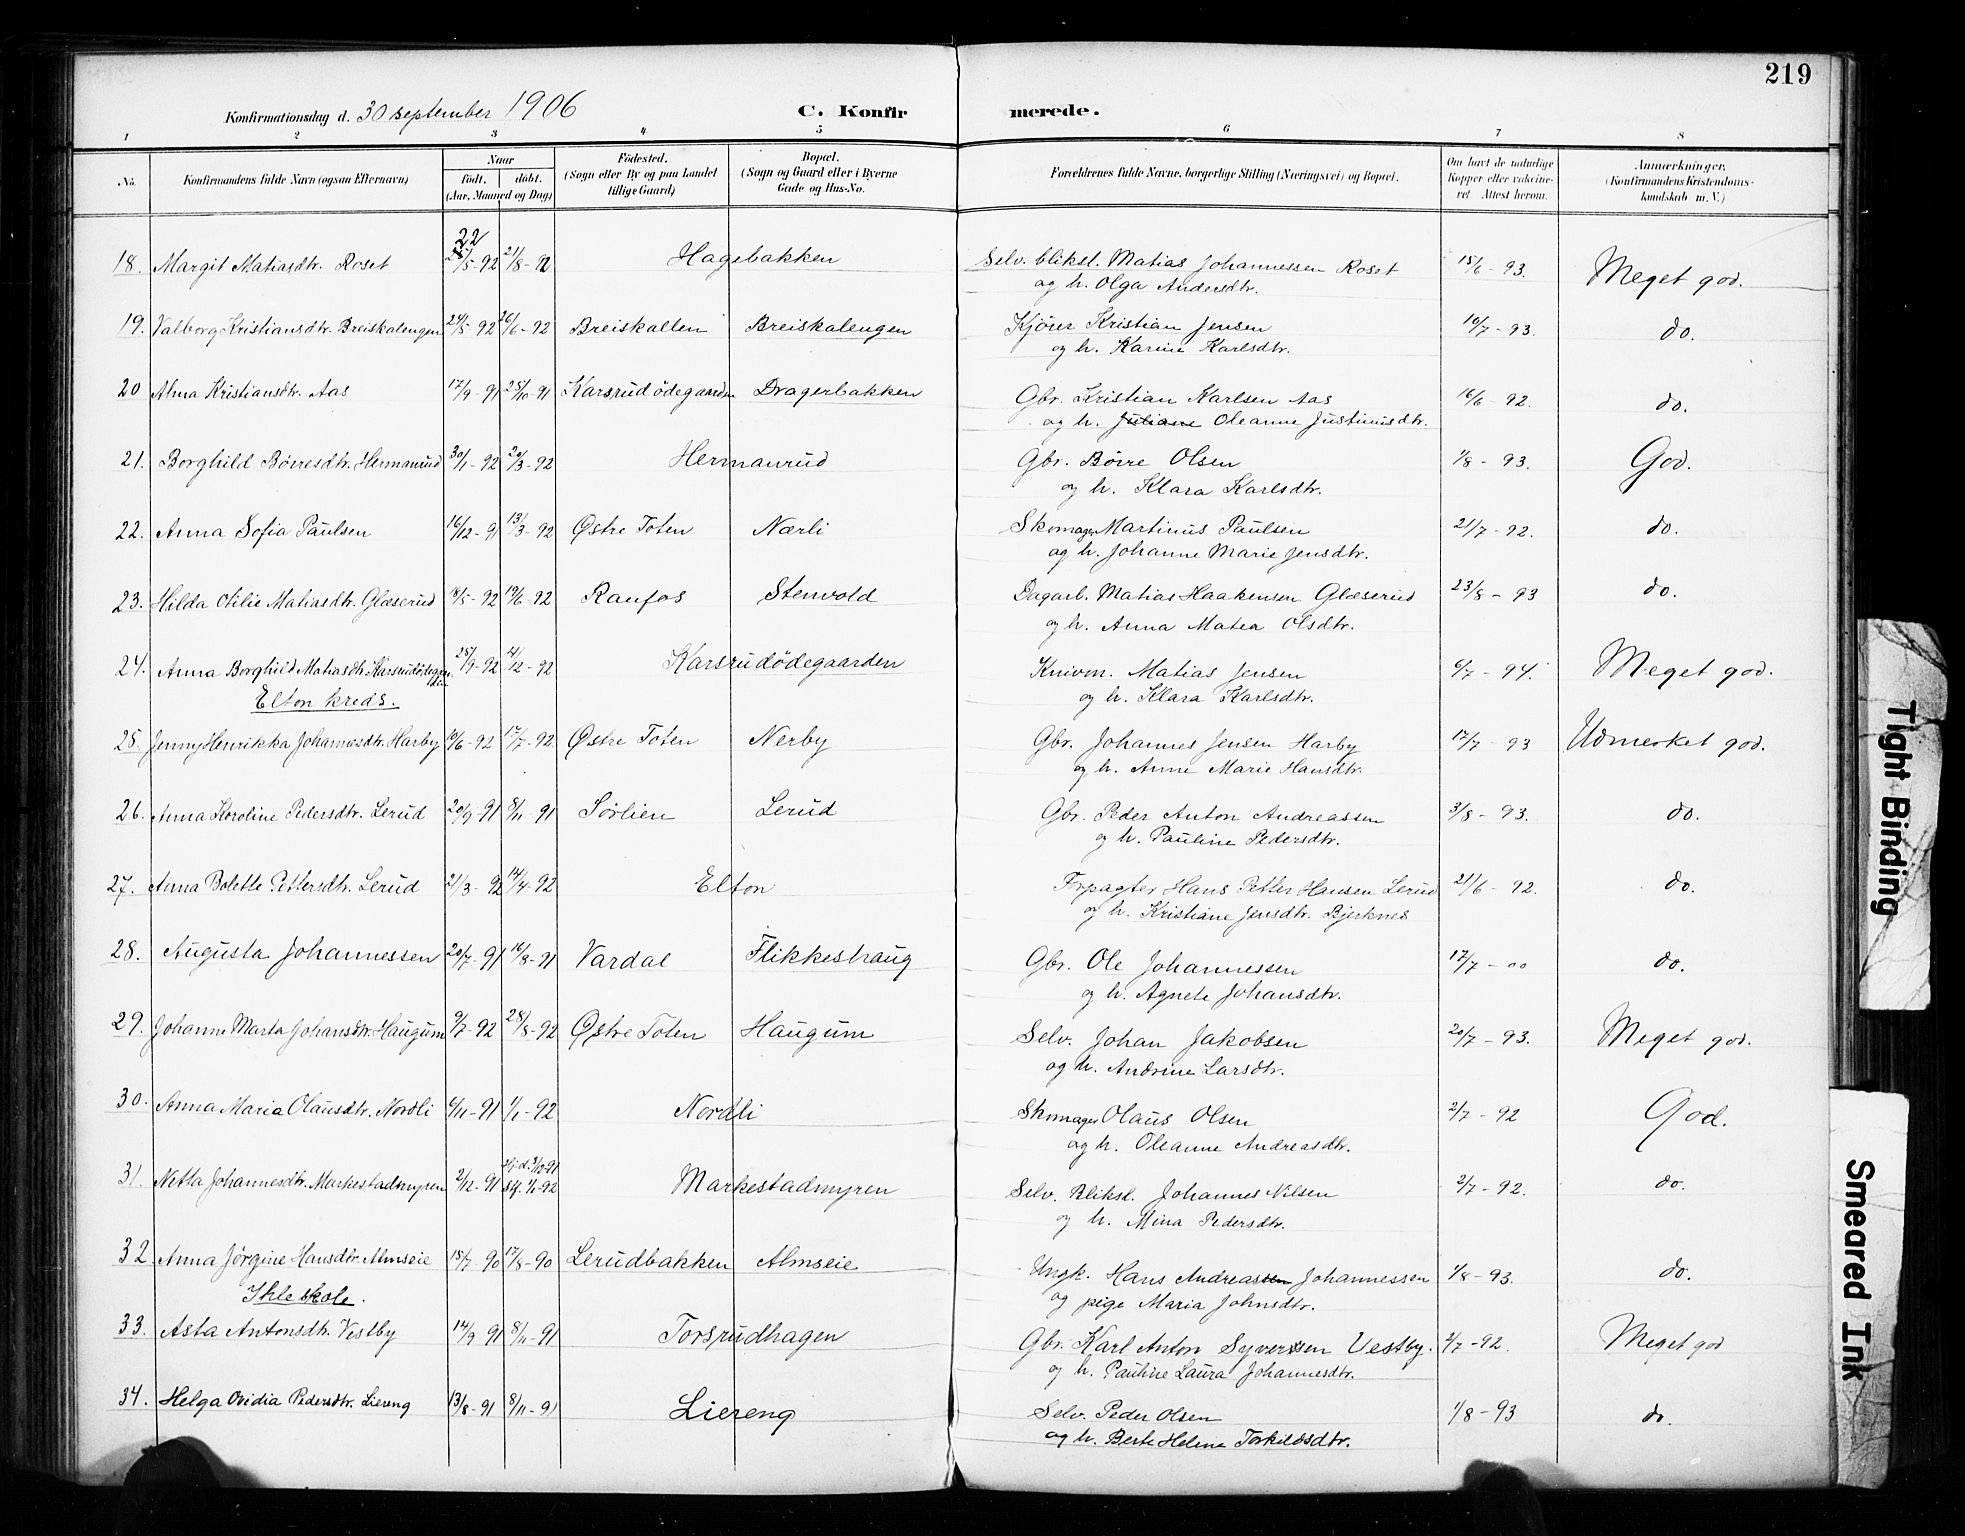 219
Konfirmationsdag d. 30 september 1906 C. Konfirmerede.
1 2 3 4 5 6 7 8
No. Konfirmandens fulde Navn (ogsaa Efternavn) Naar født, døbt. (Aar, Maaned og Dag) Födested. (Sogn eller By og paa Landet tillige Gaard) Bopæl. (Sogn og Gaard eller i Byerne Gade og Hus-No. Forældrenes fulde Navne, borgerlige Stilling (Næringsvei) og Bopæl. Om havt de naturlige Kopper eller vakcineret Attest herom. Anmærkninger. (Konfirmandens Kristendomskundskab m. V.)
22
18. Margit Matiasdtr. Roset 25/5-92 21/8-92 Hagebakken Selv. bliksl. Matias Johannessen Roset 15/6-93. Meget god.
og h. Olga Andersdtr.
19. Valborg Kristiansdtr. Breiskalengen 24/5-92 26/6-92 Breiskallen Breiskalengen Kjører Kristian Jensen 10/7-93. do.
og h. Karine Karlsdtr.
20 Alma Kristiansdtr. Aas 17/9-91 25/10-91 Karsrudødegaarden Dragerbakken Gbr. Kristian Karlsen Aas 16/6-92. do.
og h. Juliane Oleanne Justinusdtr.
21. Borghild Børresdtr. Hermanrud 30/1-92 20/3-92 Hermanrud Gbr. Børre Olsen 1/8-93. God.
og h. Klara Karlsdtr.
22. Anna Sofia Paulsen 16/12-91 13/3-92 Østre Toten Nærli Skomager Martinus Paulsen 21/7-92. do.
og h. Johanne Marie Jensdtr.
23. Hilda Otilie Matiasdtr. Glæserud 18/5-92 19/6-92 Raufos Stenvold Dagarb. Matias Haakensen Glæserud 23/8-93 do.
og h. Anna Matea Olsdtr.
24. Anna Borghild Matiasdtr. Karsrudødegaarden 25/9-92 4/12-92 Karsrudødegaarden Knivm. Matias Jensen 6/7-94. Meget god.
og h. Klara Karlsdtr.
Elton kreds.
25. Jenny Henrikka Johannesdtr. Harby 10/6-92 17/7-92 Østre Toten Nerby Gbr. Johannes Jensen Harby 17/7-93 Udmerket god.
og h. Anne Marie Hansdtr.
26. Anna Karoline Pedersdtr. Lerud 20/9-91 8/11-91 Sørlien Lerud Gbr. Peder Anton Andreassen 3/8-93. do.
og h. Pauline Pedersdtr.
27. Anna Bolette Pettersdtr. Lerud 21/3-92 14/4-92 Elton Forpagter Hans Petter Hansen Lerud 21/6-92. do.
og h. Kristiane Jensdtr. Bjerknes
28. Augusta Johannessen 20/7-91 16/8-91 Vardal Flikkeshaug Gbr. Ole Johannessen 17/7-00 do.
og h. Agnete Johansdtr.
29. Johanne Marta Johansdtr. Haugum 9/7-92 28/8-92 Østre Toten Haugum Selv. Johan Jakobsen 20/7-93. Meget god.
og h. Andrine Larsdtr.
30. Anna Maria Olausdtr. Nordli 6/11-91 1/1-92 Nordli Skomager Olaus Olsen 2/7-92 God.
og h. Oleanne Andreasdtr.
31. Netta Johannesdtr. Markestadmyren 2/12-91 Hj.d. 3/12-91 Stf. 1/1-92 Markestadmyren Selv. Bliksl. Johannes Nilsen 2/7-92. do.
og h. Mina Pedersdtr.
32 Anna Jørgine Hansdtr. Almseie 15/7-90 17/8-90 Lerudbakken Almseie Ungk. Hans Andreassen Johannessen 1/8-93. do.
og pige Maria Johnsdtr.
Ihle skole.
33. Asta Antonsdtr. Vestby 14/9-91 8/11-91 Torsrudhagen Gbr. Karl Anton Syversen Vestby. 2/7-92. Meget god
og h. Pauline Laura Johannesdtr.
34. Helga Ovidia Pedersdtr. Liereng 13/8-91 8/11-91 Liereng Selv. Peder Olsen 1/8-93 do.
og h. Berte Helene Torkildsdtr.
Tight Binding
Smeared Ink